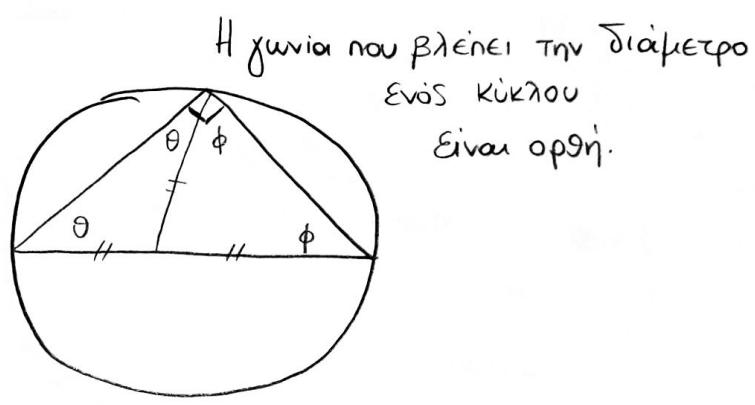 Η γωνία που βλέπει την διάμετρο
ενός κύκλου
είναι ορθή.
θ φ
θ φ